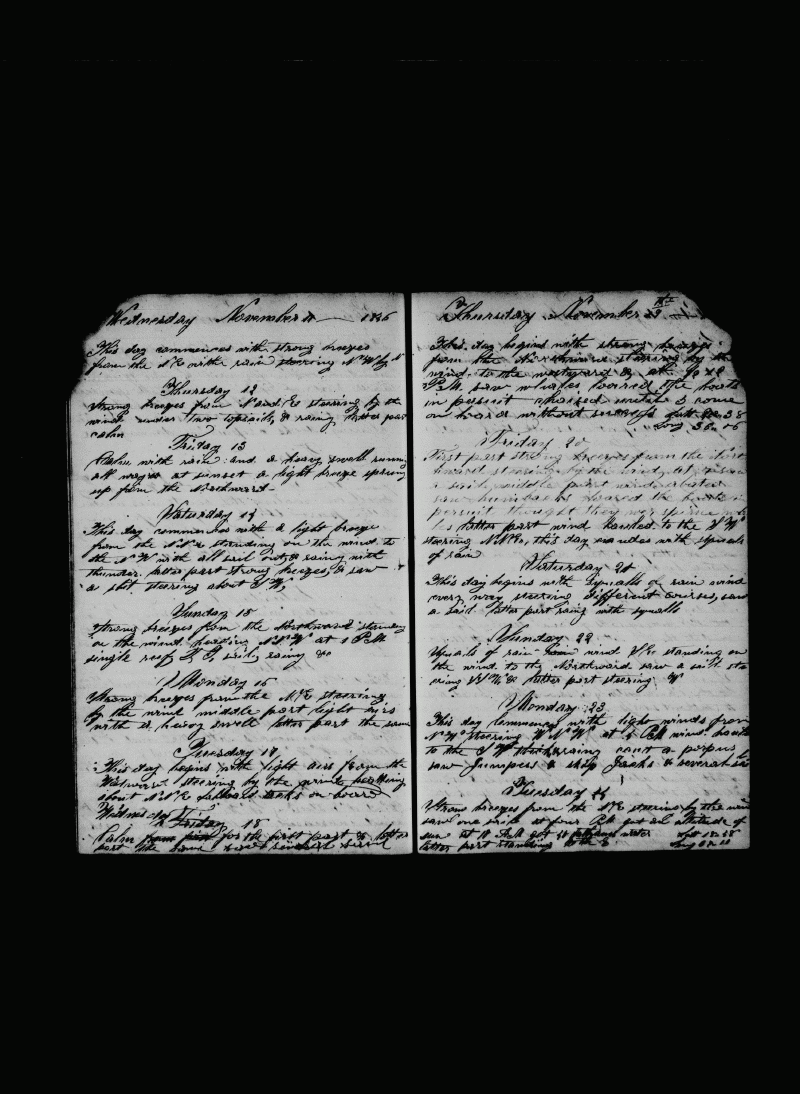 Wednesday November 11 1846
This day commences with strong breezes
from the N E with rain steering N W by N
Thursday 12
Strong breezes from N and E steering by the
wind under two topsails, & raing latter part
calm
Friday 13
Calm with rain and a heavy swell runing
all ways at sunset a light breeze sprung
up from the Northward
Saturday 14
This day commences with a light breeze
from the N E standing on the wind to
the N W with all sail out & raing with
thunder latter part strong breezes, & saw
a ship steering about S W,
Sunday 15
Strong breezes from the Northward standing
on the wind heading at 1 P M
single reef sails raing
Monday 16
Strong breezes from the N E steering
by the wind middle part light airs
with a heavy swell latter part the same
Tuesday 17
This day begins with light airs from the
Westward steering by the wind
about N N E larboard tacks on board
Wednesday Friday 18
Calm for the first part & latter
part the same several
Thursday November 19
This day begins with strong breezes
from the Northward steering by the
wind to the westward & at
P.M. saw whales lowered the boats
in persuit chaised untill 5 come
on board without success Latt 38
Long 36 06
Friday 20
First part strong breezes from the North
ward steering by the wind,
a sail, middle part wind abated
saw humbacks lowered the boats in
persuit thought they
latter part wind hauled to the S W
steering N N E, this day ends with squalls
of rain
Saturday 21
This day begins with squalls of rain wind
every way steering different courses, saw
a sail latter part raing with squalls
Sunday 22
Squals of rain from wind S E standing on
the wind to the Northward saw a sail ste
ering & latter part steering W
Monday 23
This day Commences with light winds from
N W steering W N W at 4 P M wind hauld
to the S W raing caut a porpus
saw Jumpers & skip Jacks & several
Tuesday 24
Strong breezes from the N E steering by the wind
saw one ship at four P.M. got an altitude of
sun at 10 A.M got water
latter part standing to the E